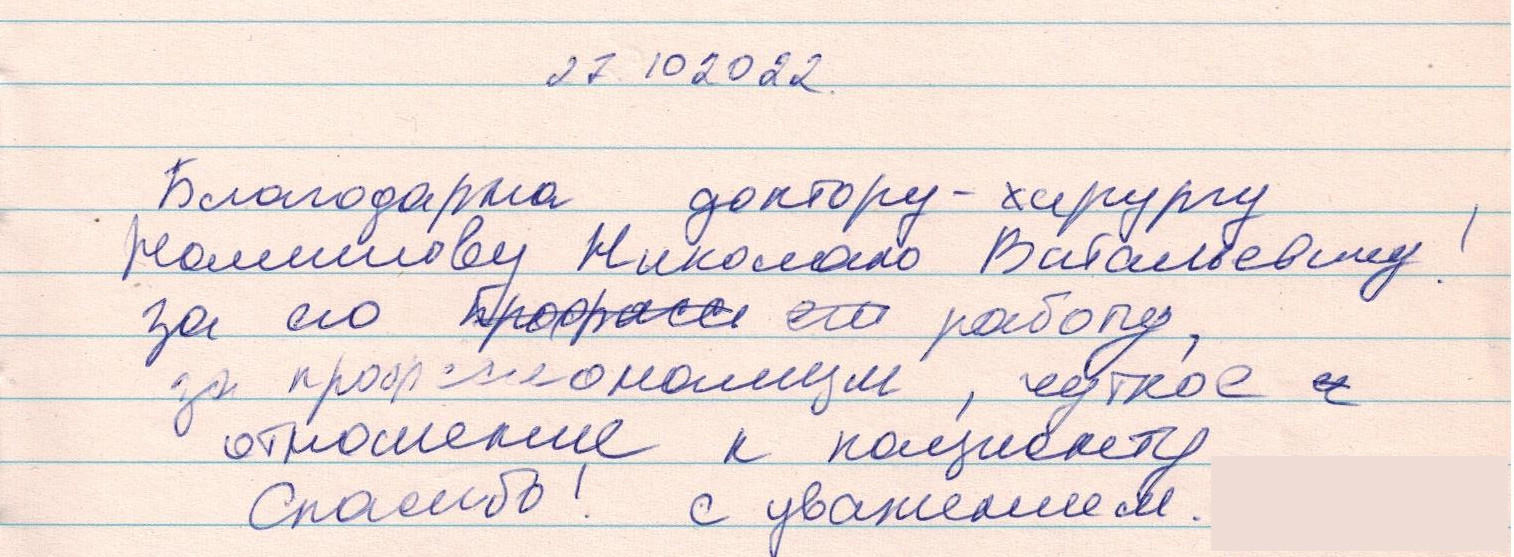 27.10 2022.
Благодарна доктору-хирургу
Николаю Витальевичу!
за его работу,
за профессионализм, чуткое
отношение к пациенту
Спасибо! с уважением.